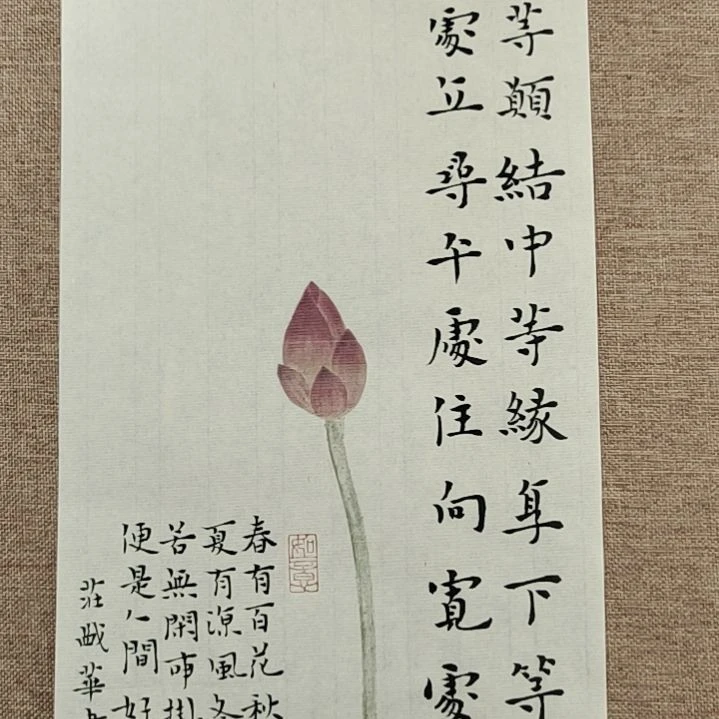 等願結中等緣享下等
處立尋平處住向寬處
春有百花秋
夏有涼風冬
若無閑事掛
便是人間好
莊華
如意